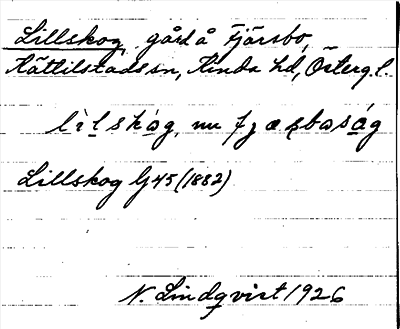 Lillskog, gård å Fjärsbo,
Kättilstads sn, Kinda hd, Österg. l.
lìlskóg, nu fjæʀbosåg
Lillskog G 45 (1882)
N. Lindqvist 1926